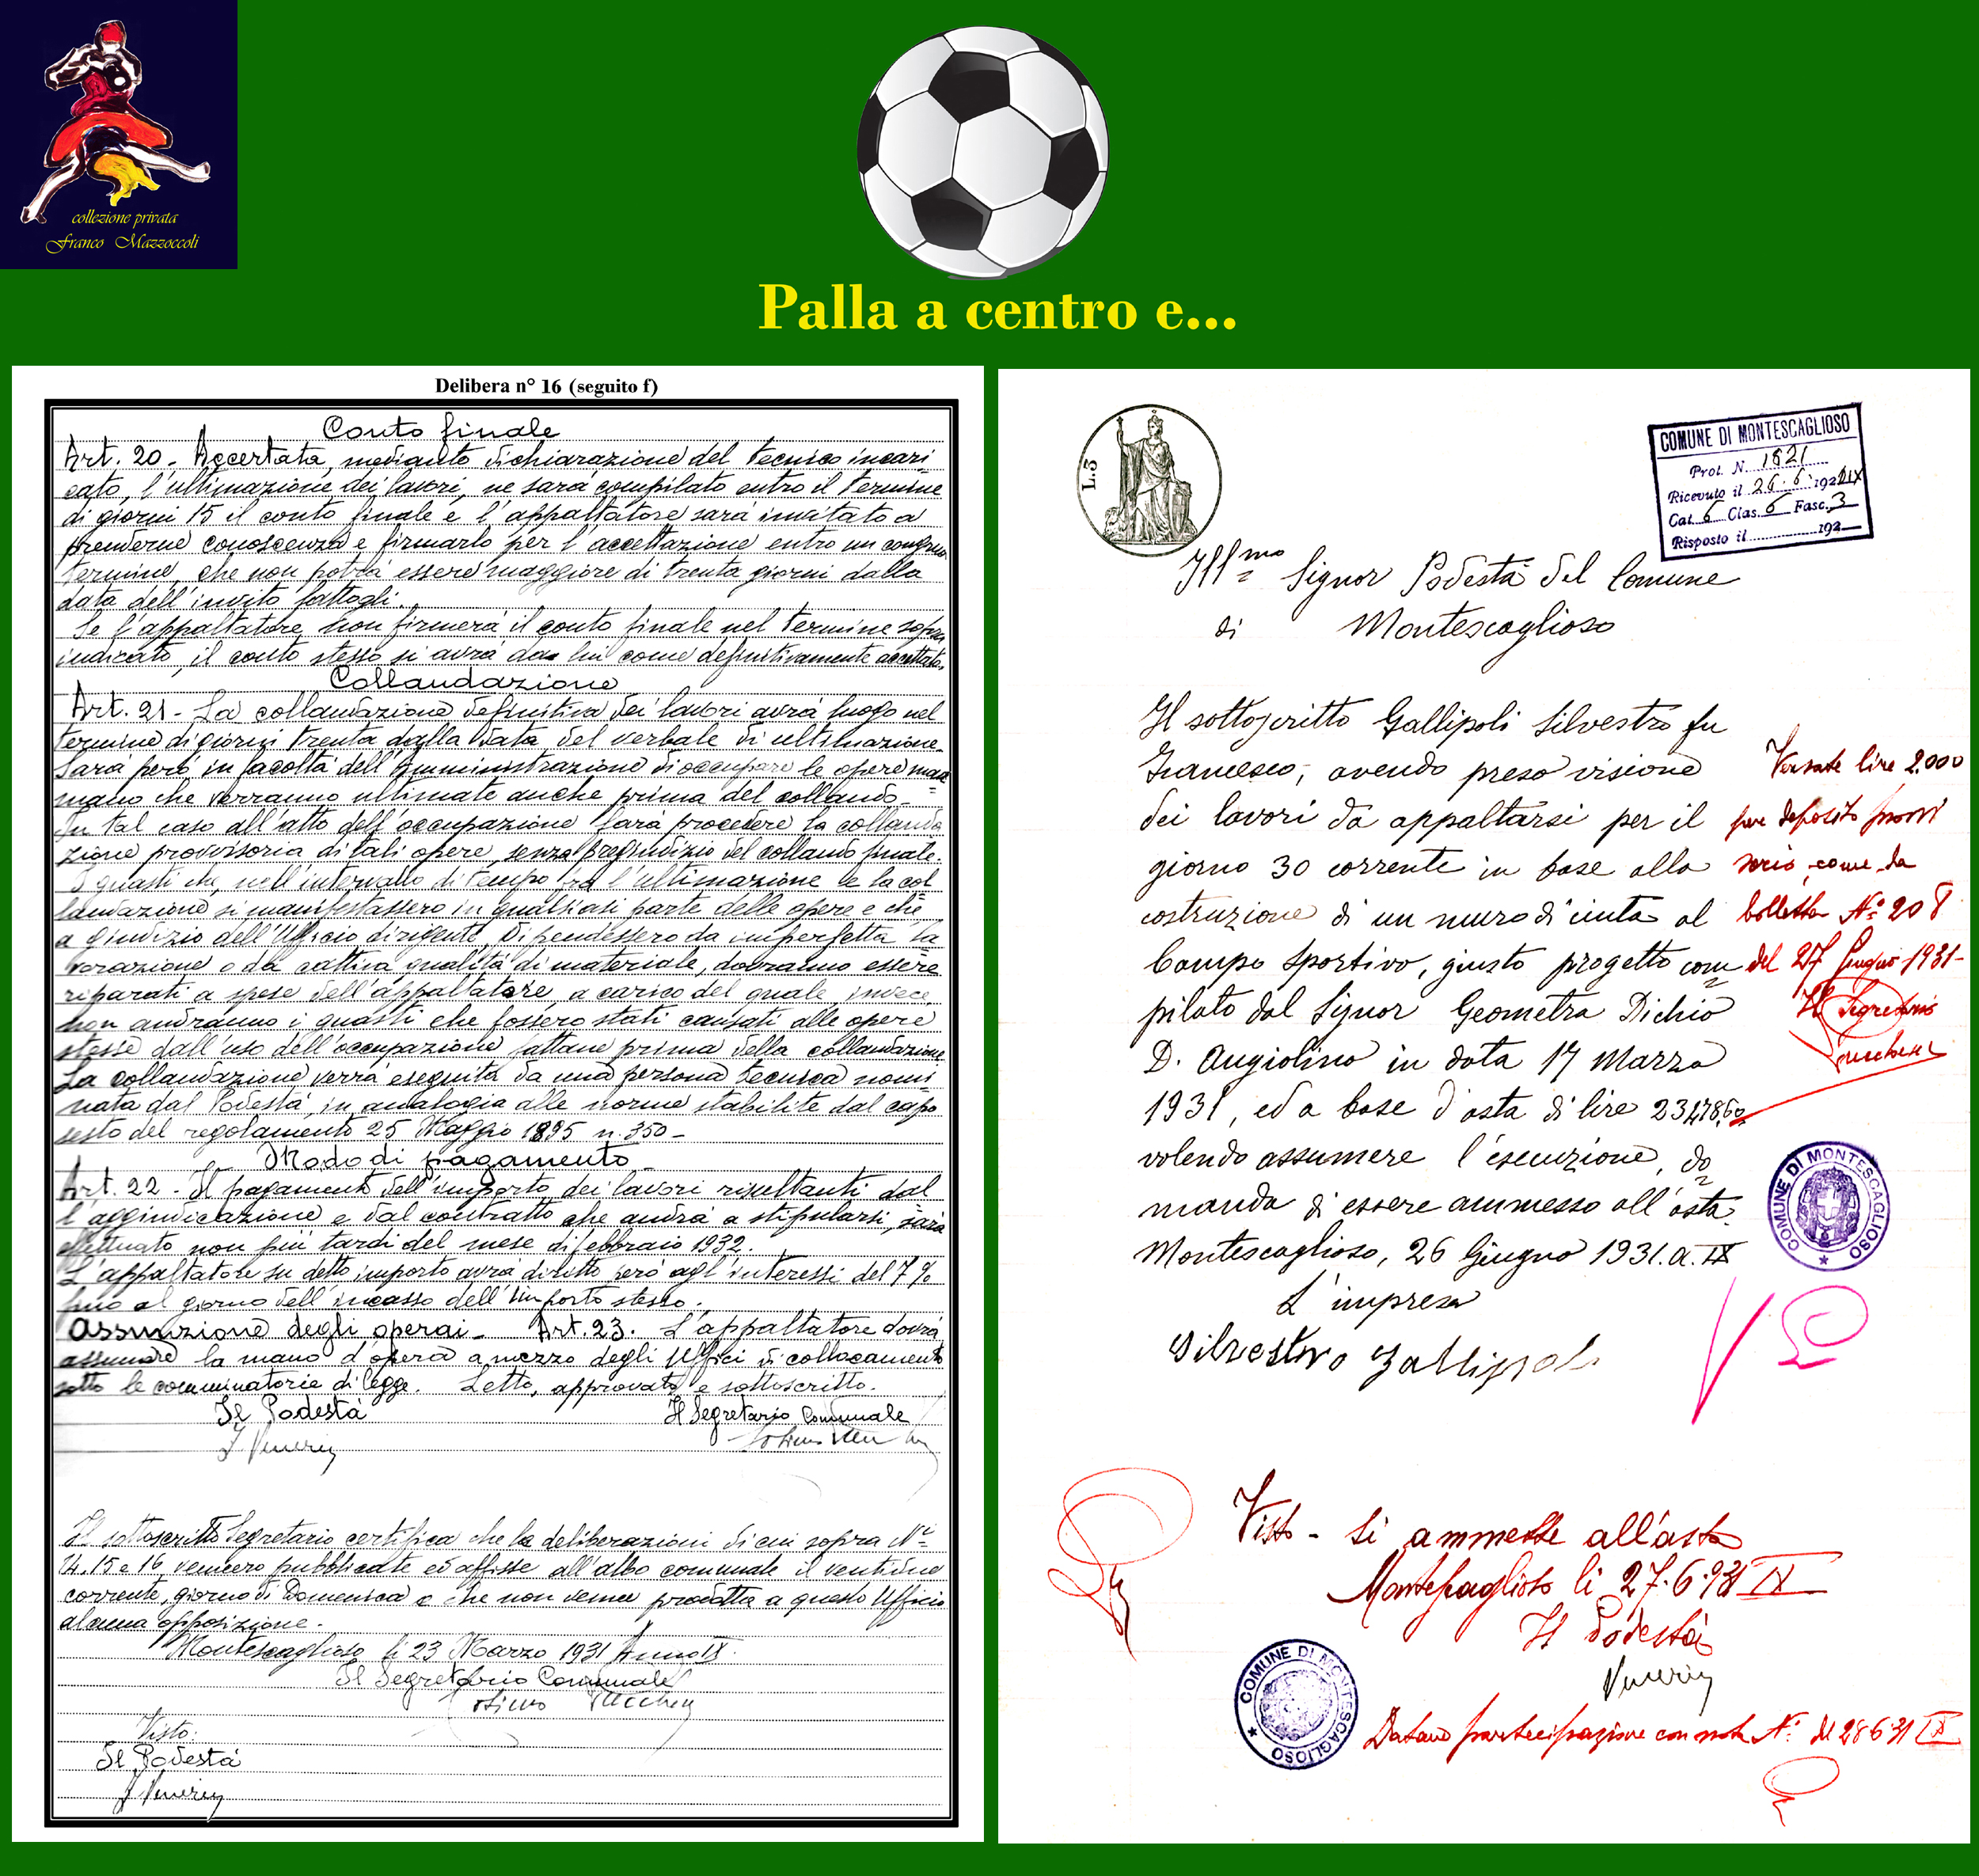 collezione privata
Franco Mazzoccoli
Palla a centro e...
Delibera n° 16 (seguito f)
Conto finale
Art. 20 - Accertata, mediante dichiarazione del tecnico incari=
cato, l'ultimazione dei lavori, ne sarà compilato entro il termine
di giorni 15 il conto finale e l'appaltatore sarà invitato a
prenderne conoscenza e firmarlo per l'accettazione entro un congruo
termine, che non potrà essere maggiore di trenta giorni dalla
data dell'invito fattogli.
Se l'appaltatore non firmerà il conto finale nel termine sopra
indicato, il conto stesso si avrà da lui come definitivamente accettato.
Collaudazione
Art. 21 - La collaudazione definitiva dei lavori avrà luogo nel
termine di giorni trenta dalla data del verbale di ultimazione.
Sarà però in facoltà dell'Amministrazione di occupare le opere man
mano che verranno ultimate anche prima del collaudo.
In tal caso all'atto dell'occupazione farà procedere la collauda
zione provvisoria di tali opere, senza pregiudizio del collaudo finale.
I guasti che, nell'intervallo di tempo fra l'ultimazione e la col
laudazione si manifestassero in qualsiasi parte delle opere e che
a giudizio dell'Ufficio dirigente, dipendessero da imperfetta la
vorazione o da cattiva qualità di materiale, dovranno essere
riparati a spese dell'appaltatore, a carico del quale invece,
non andranno i guasti che fossero stati causati alle opere
stesse dall'uso dell'occupazione fattane prima della collaudazione.
La collaudazione verrà eseguita da una persona tecnica nomi=
nata dal Podestà, in analogia alle norme stabilite dal capo
sesto del regolamento 25 Maggio 1895 n. 350 -
Modo di pagamento
Art. 22 - Il pagamento dell'importo dei lavori risultanti dal
l'aggiudicazione e dal contratto che andrà a stipularsi, sarà
effettuato non più tardi del mese di febbraio 1932.
L'appaltatore su detto importo avrà diritto però agl'interessi del 7%
fino al giorno dell'incasso dell'importo stesso.
Assunzione degli operai - Art. 23. L'appaltatore dovrà
assumere la mano d'opera a mezzo degli Uffici di collocamento
sotto le comminatorie di legge. Letto, approvato e sottoscritto.
Il Podestà Il Segretario Comunale
Il sottoscritto Segretario certifica che le deliberazioni di cui sopra Ni=
14.15 e 16 vennero pubblicate ed affisse all'albo comunale il ventidue
corrente, giorno di Domenica e che non venne prodotta a questo Ufficio
alcuna opposizione.
Montescaglioso li 23 Marzo 1931 Anno IX.
Il Segretario Comunale
Visto:
Il Podestà
L.3
COMUNE DI MONTESCAGLIOSO
Prot. N. 1821
Ricevuto il 26.6.192 IX
Cat. 6 Clas. 6 Fasc. 3
Risposto il 192
Ill.mo Signor Podestà del Comune
di Montescaglioso
Il sottoscritto Gallipoli Silvestro fu
Francesco, avendo preso visione
dei lavori da appaltarsi per il
giorno 30 corrente in base alla
costruzione di un muro di cinta al
Campo Sportivo, giusto progetto com
pilato dal Signor Geometra Dichio
D. Angiolino in data 17 Marzo
1931, ed a base d'asta di lire 23478,60
volendo assumere l'esecuzione, do
manda di essere ammesso all'asta.
Montescaglioso, 26 Giugno 1931. a. IX
L'impresa
Silvestro Gallipoli
Versate lire 2.000
per deposito provvi
sorio come da
bolletta N° 208
del 27 Giugno 1931 -
Il Segretario
COMUNE DI MONTESCAGLIOSO
Visto - Si ammette all'asta
Montescaglioso li 27.6.931 IX
Il Podestà
COMUNE DI MONTESCAGLIOSO
partecipazione con nota N. del 28 6 31 IX